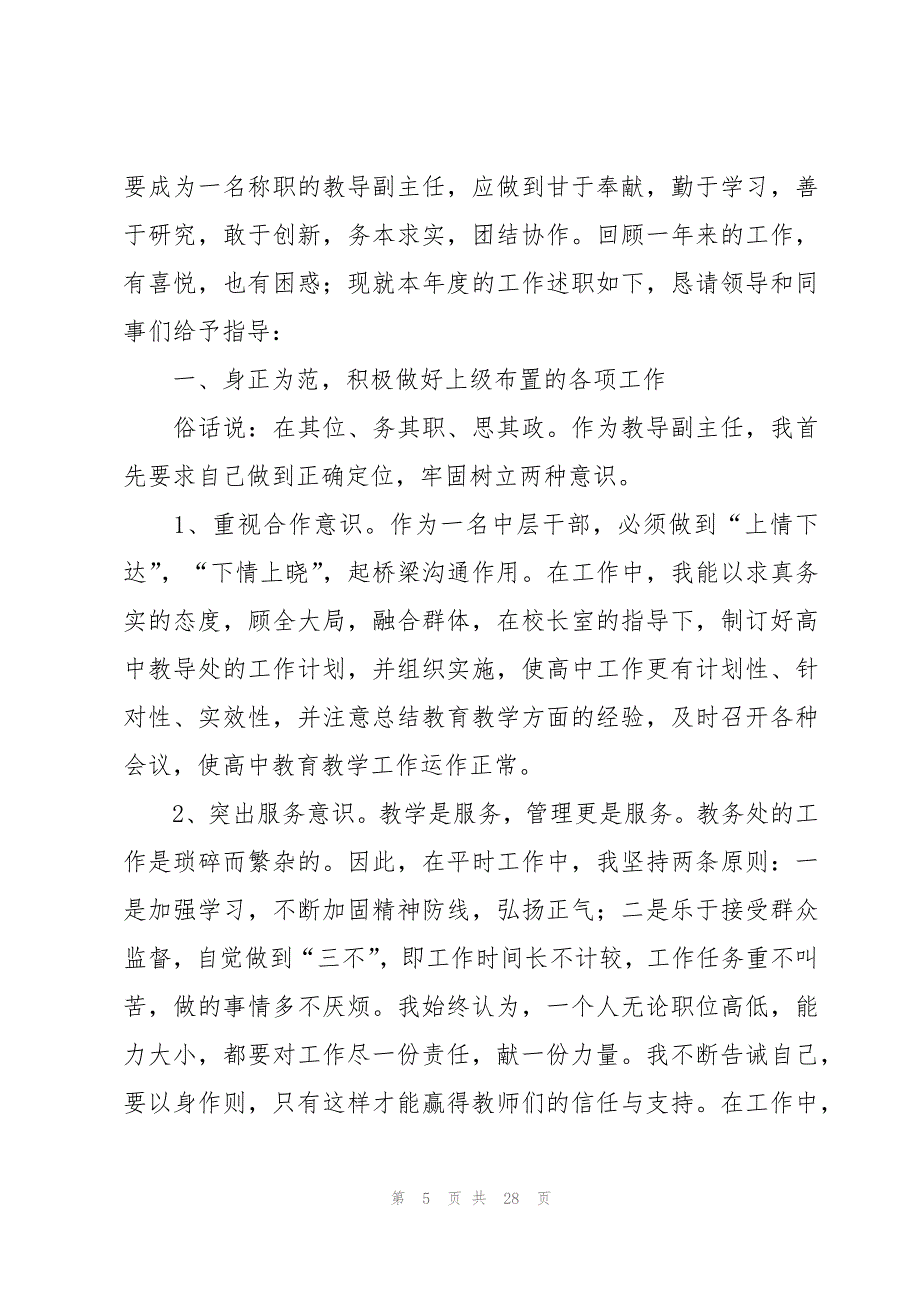 要成为一名称职的教导副主任，应做到甘于奉献，勤于学习，善
于研究，敢于创新，务本求实，团结协作。回顾一年来的工作，
有喜悦，也有困惑；现就本年度的工作述职如下，恳请领导和同
事们给予指导：
一、身正为范，积极做好上级布置的各项工作
俗话说：在其位、务其职、思其政。作为教导副主任，我首
先要求自己做到正确定位，牢固树立两种意识。
1、重视合作意识。作为一名中层干部，必须做到“上情下
达”，“下情上晓”，起桥梁沟通作用。在工作中，我能以求真务
实的态度，顾全大局，融合群体，在校长室的指导下，制订好高
中教导处的工作计划，并组织实施，使高中工作更有计划性、针
对性、实效性，并注意总结教育教学方面的经验，及时召开各种
会议，使高中教育教学工作运作正常。
2、突出服务意识。教学是服务，管理更是服务。教务处的工
作是琐碎而繁杂的。因此，在平时工作中，我坚持两条原则：一
是加强学习，不断加固精神防线，弘扬正气；二是乐于接受群众
监督，自觉做到“三不”，即工作时间长不计较，工作任务重不叫
苦，做的事情多不厌烦。我始终认为，一个人无论职位高低，能
力大小，都要对工作尽一份责任，献一份力量。我不断告诫自己，
要以身作则，只有这样才能赢得教师们的信任与支持。在工作中，
第 5 页 共 28 页